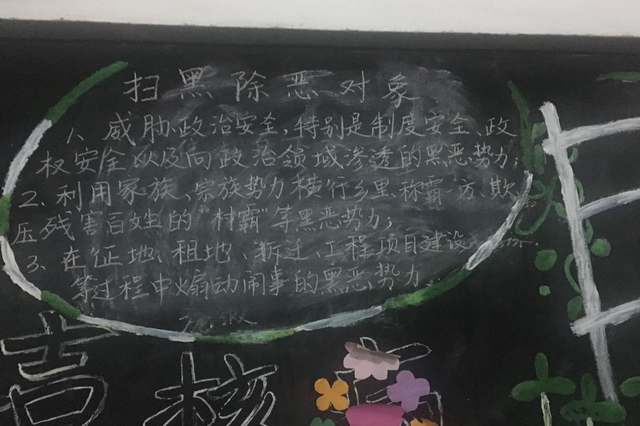 扫黑除恶对象
1、威胁政治安全,特别是制度安全、政
权安全以及向政治领域渗透的黑恶势力;
2、利用家族、宗族势力横行乡里称霸一方、欺
压残害百姓的“村霸”等黑恶势力;
3、在征地、租地、拆迁、工程项目建设
等过程中火扇动闹事的黑恶势力
吉 核